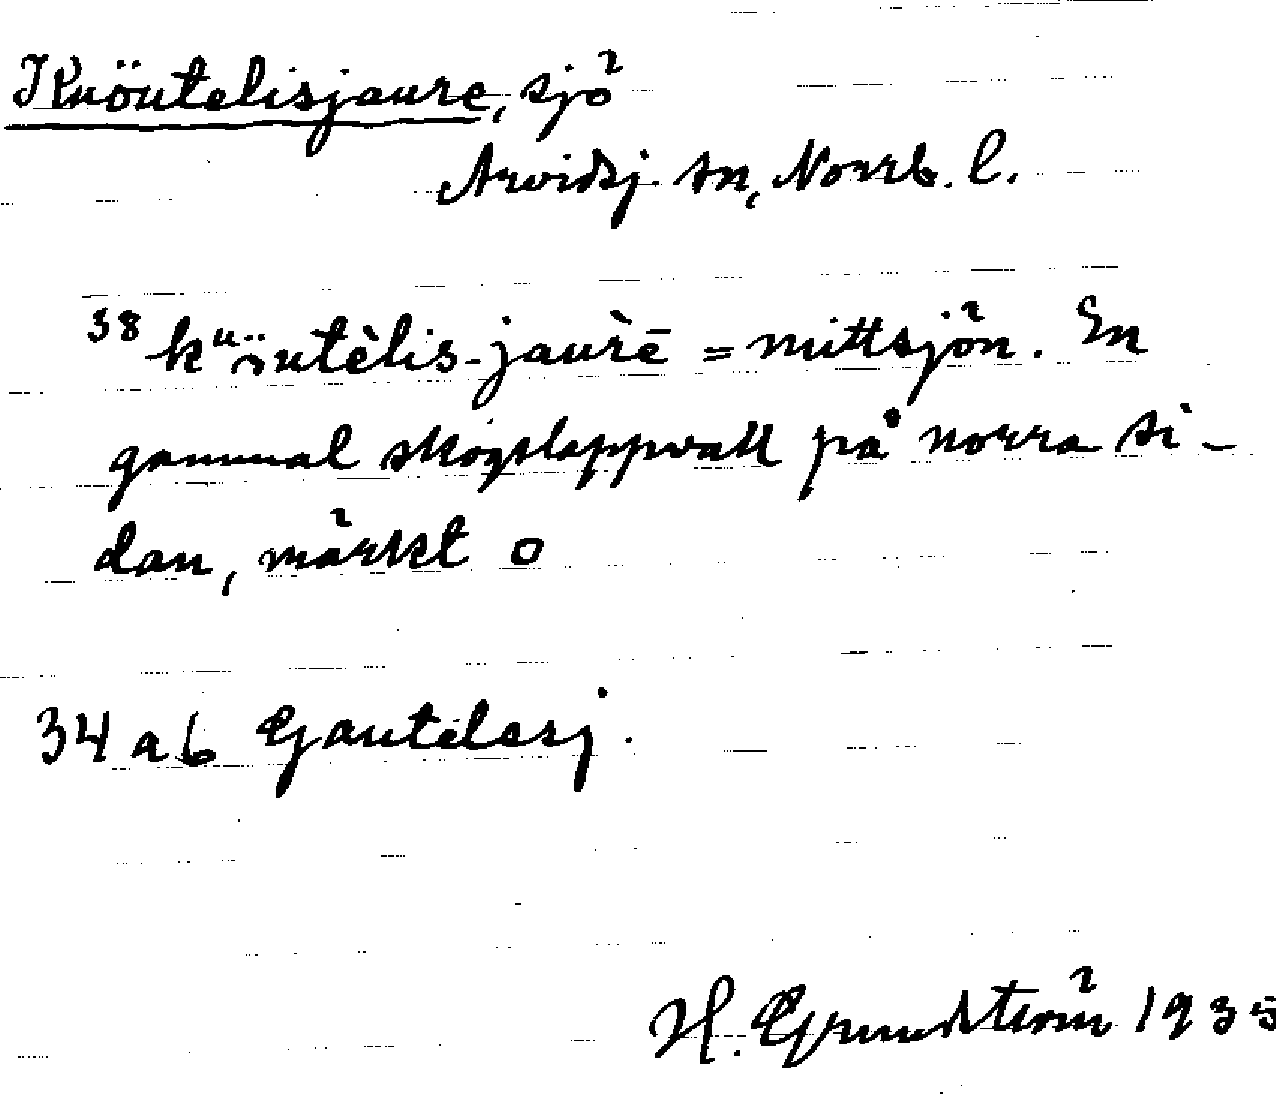 Kuöutelisjaure, sjö
Arvidsj. sn, Norrb. l.
38 kuöutèlis-jaurè = mittsjön. En
gammal skogslappvall på norra si-
dan, märkt o
34 a b Gautelesj.
H. Grundström 1935